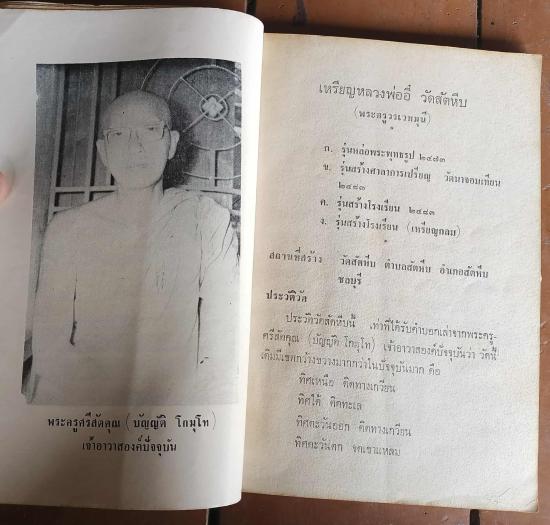 พระครูศรีสัตคุณ (บัญญัติ โกมุโท)
เจ้าอาวาสองค์ปัจจุบัน
เหรียญหลวงพ่ออี๋ วัดสัตหีบ
(พระครูวรเวทมุนี)
ก. รุ่นหล่อพระพุทธรูป ๒๔๗๓
ข. รุ่นสร้างศาลาการเปรียญ วัดนาจอมเทียน
๒๔๘๓
ค. รุ่นสร้างโรงเรียน ๒๔๘๓
ง. รุ่นสร้างโรงเรียน (เหรียญกลม)
สถานที่สร้าง วัดสัตหีบ ตำบลสัตหีบ อำเภอสัตหีบ
ชลบุรี
ประวัติวัด
ประวัติวัดสัตหีบนี้ เท่าที่ได้รับคำบอกเล่าจากพระครู-
ศรีสัตคุณ (บัญญัติ โกมุโท) เจ้าอาวาสองค์ปัจจุบันว่า วัดนี้
เดิมมีเขตกว้างขวางมากกว่าในปัจจุบันมาก คือ
ทิศเหนือ ติดทางเกวียน
ทิศใต้ ติดทะเล
ทิศตะวันออก ติดทางเกวียน
ทิศตะวันตก จดเขาแหลม